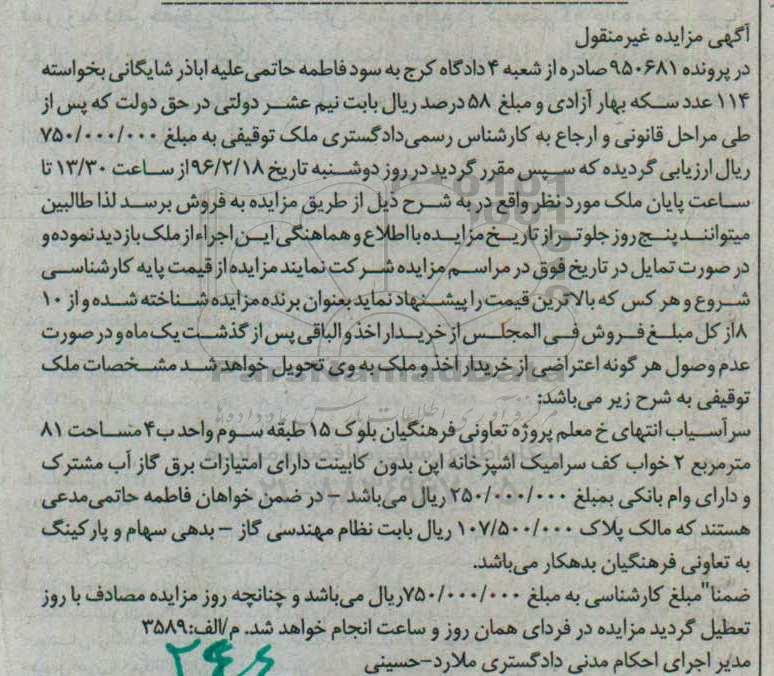 آگهی مزایده غیرمنقول
در پرونده ۹۵۰۶۸۱ صادره از شعبه ۴ دادگاه کرج به سود فاطمه حاتمی علیه اباذر شایگانی بخواسته
۱۱۴ عدد سکه بهار آزادی و مبلغ ۵۸ درصد ریال بابت نیم عشر دولتی در حق دولت که پس از
طی مراحل قانونی و ارجاع به کارشناس رسمی دادگستری ملک توقیفی به مبلغ ۷۵۰/۰۰۰/۰۰۰
ریال ارزیابی گردیده که سپس مقرر گردید در روز دوشنبه تاریخ ۹۶/۲/۱۸ از ساعت ۱۳/۳۰ تا
ساعت پایان ملک مورد نظر واقع در به شرح ذیل از طریق مزایده به فروش برسد لذا طالبین
میتوانند پنج روز جلوتر از تاریخ مزایده با اطلاع و هماهنگی این اجراء از ملک بازدید نموده و
در صورت تمایل در تاریخ فوق در مراسم مزایده شرکت نمایند مزایده از قیمت پایه کارشناسی
شروع و هر کس که بالاترین قیمت را پیشنهاد نماید بعنوان برنده مزایده شناخته شده و از ۱۰
٪از کل مبلغ فروش فی المجلس از خریدار اخذ و الباقی پس از گذشت یک ماه و در صورت
عدم وصول هر گونه اعتراضی از خریدار اخذ و ملک به وی تحویل خواهد شد مشخصات ملک
توقیفی به شرح زیر می‌باشد:
سرآسیاب انتهای خ معلم پروژه تعاونی فرهنگیان بلوک ۱۵ طبقه سوم واحد ب۴ مساحت ۸۱
مترمربع ۲ خواب کف سرامیک اشپزخانه اپن بدون کابینت دارای امتیازات برق گاز آب مشترک
و دارای وام بانکی بمبلغ ۲۵۰/۰۰۰/۰۰۰ ریال می‌باشد – در ضمن خواهان فاطمه حاتمی مدعی
هستند که مالک پلاک ۱۰۷/۵۰۰/۰۰۰ ریال بابت نظام مهندسی گاز – بدهی سهام و پارکینگ
به تعاونی فرهنگیان بدهکار می‌باشد.
ضمنا"مبلغ کارشناسی به مبلغ ۷۵۰/۰۰۰/۰۰۰ریال می‌باشد و چنانچه روز مزایده مصادف با روز
تعطیل گردید مزایده در فردای همان روز و ساعت انجام خواهد شد. م/الف:۳۵۸۹
مدیر اجرای احکام مدنی دادگستری ملارد-حسینی
۲۴۶
ParsNamadData